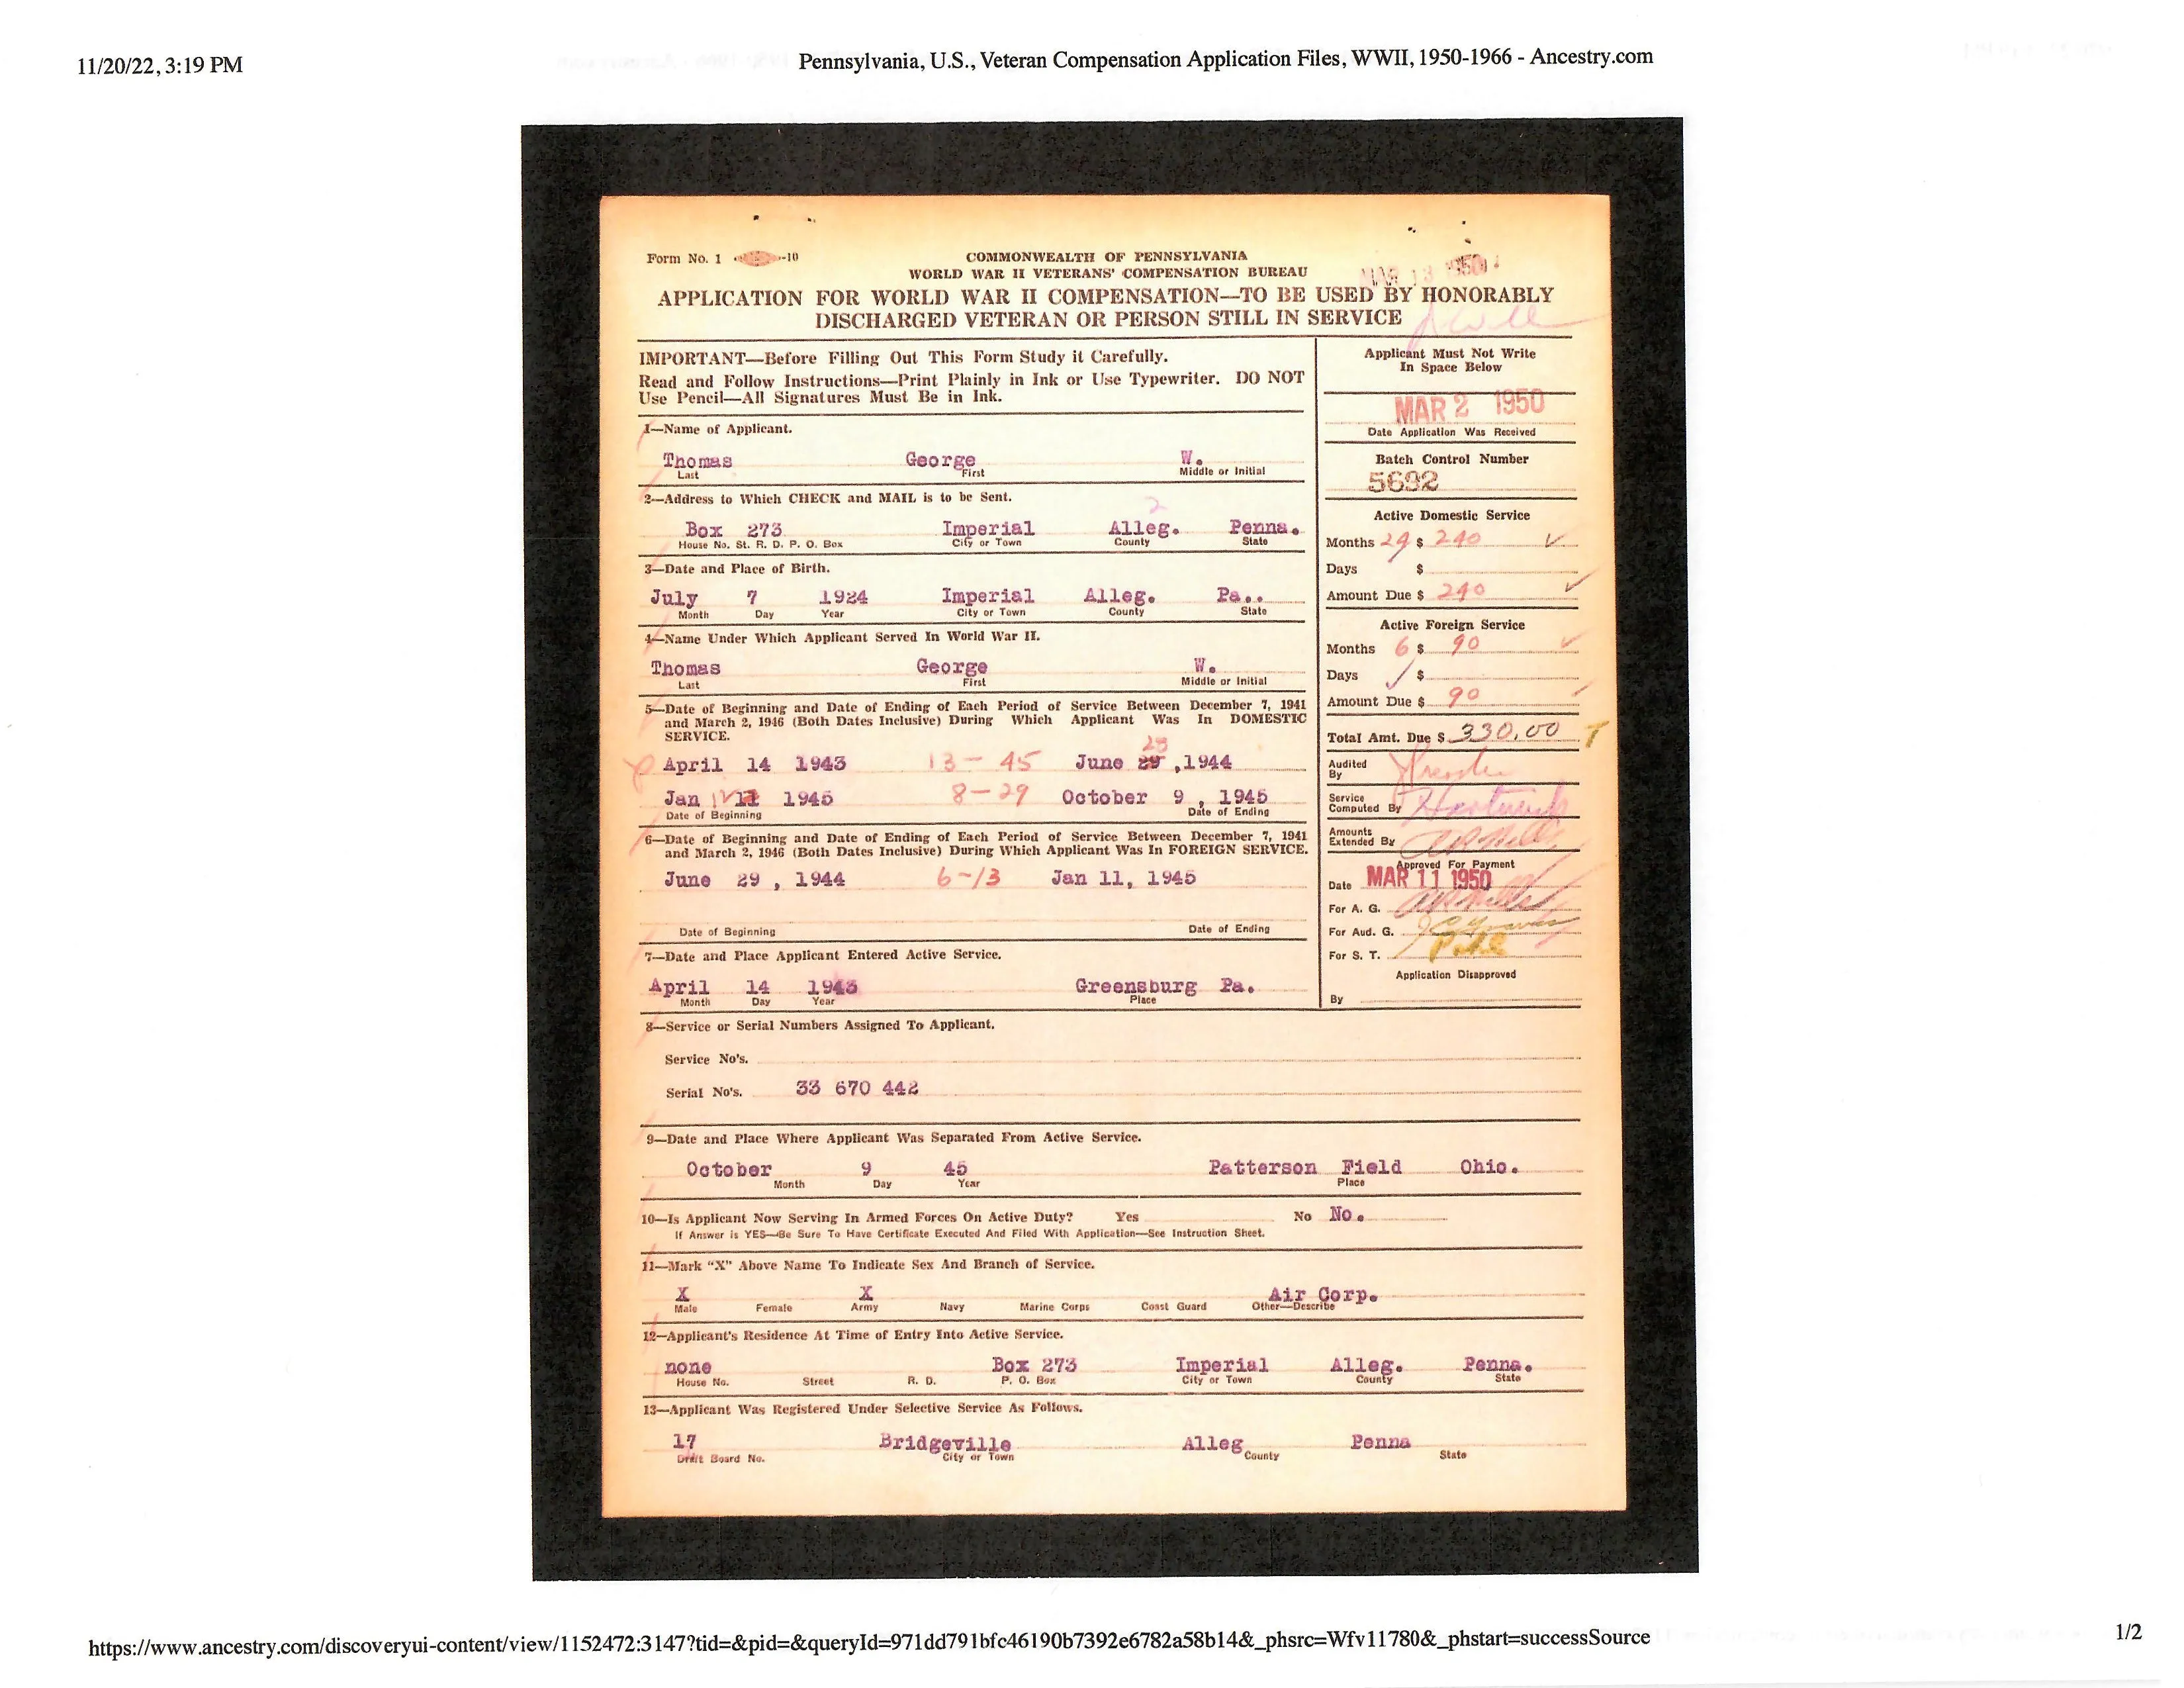 11/20/22, 3:19 PM
Pennsylvania, U.S., Veteran Compensation Application Files, WWII, 1950-1966 - Ancestry.com
Form No. 1 -10
COMMONWEALTH OF PENNSYLVANIA
WORLD WAR II VETERANS' COMPENSATION BUREAU
MAR 13 1950
APPLICATION FOR WORLD WAR II COMPENSATION—TO BE USED BY HONORABLY
DISCHARGED VETERAN OR PERSON STILL IN SERVICE
IMPORTANT—Before Filling Out This Form Study it Carefully.
Read and Follow Instructions—Print Plainly in Ink or Use Typewriter. DO NOT
Use Pencil—All Signatures Must Be in Ink.
1—Name of Applicant.
Thomas George W.
Last First Middle or Initial
2—Address to Which CHECK and MAIL is to be Sent.
2
Box 273 Imperial Alleg. Penna.
House No. St. R. D. P. O. Box City or Town County State
3—Date and Place of Birth.
July 7 1924 Imperial Alleg. Pa..
Month Day Year City or Town County State
4—Name Under Which Applicant Served In World War II.
Thomas George W.
Last First Middle or Initial
5—Date of Beginning and Date of Ending of Each Period of Service Between December 7, 1941
and March 2, 1946 (Both Dates Inclusive) During Which Applicant Was In DOMESTIC
SERVICE.
April 14 1943 13-45 June 29, 1944
Jan 11 1945 8-29 October 9, 1945
Date of Beginning Date of Ending
6—Date of Beginning and Date of Ending of Each Period of Service Between December 7, 1941
and March 2, 1946 (Both Dates Inclusive) During Which Applicant Was In FOREIGN SERVICE.
June 29, 1944 6-13 Jan 11, 1945
Date of Beginning Date of Ending
7—Date and Place Applicant Entered Active Service.
April 14 1943 Greensburg Pa.
Month Day Year Place
Applicant Must Not Write
In Space Below
MAR 2 1950
Date Application Was Received
Batch Control Number
5692
Active Domestic Service
Months 24 $ 240
Days $
Amount Due $ 240
Active Foreign Service
Months 6 $ 90
Days $
Amount Due $ 90
Total Amt. Due $ 330.00
Audited
By
Service
Computed By
Amounts
Extended By
Approved For Payment
Date MAR 11 1950
For A. G.
For Aud. G.
For S. T.
Application Disapproved
By
8—Service or Serial Numbers Assigned To Applicant.
Service No's.
Serial No's. 33 670 442
9—Date and Place Where Applicant Was Separated From Active Service.
October 9 45 Patterson Field Ohio.
Month Day Year Place
10—Is Applicant Now Serving In Armed Forces On Active Duty? Yes No No.
If Answer is YES—Be Sure To Have Certificate Executed And Filed With Application—See Instruction Sheet.
11—Mark "X" Above Name To Indicate Sex And Branch of Service.
X X Air Corp.
Male Female Army Navy Marine Corps Coast Guard Other—Describe
12—Applicant's Residence At Time of Entry Into Active Service.
none Box 273 Imperial Alleg. Penna.
House No. Street R. D. P. O. Box City or Town County State
13—Applicant Was Registered Under Selective Service As Follows.
17 Bridgeville Alleg Penna
Draft Board No. City or Town County State
https://www.ancestry.com/discoveryui-content/view/1152472:3147?tid=&pid=&queryId=971dd791bfc46190b7392e6782a58b14&_phsrc=Wfv11780&_phstart=successSource
1/2